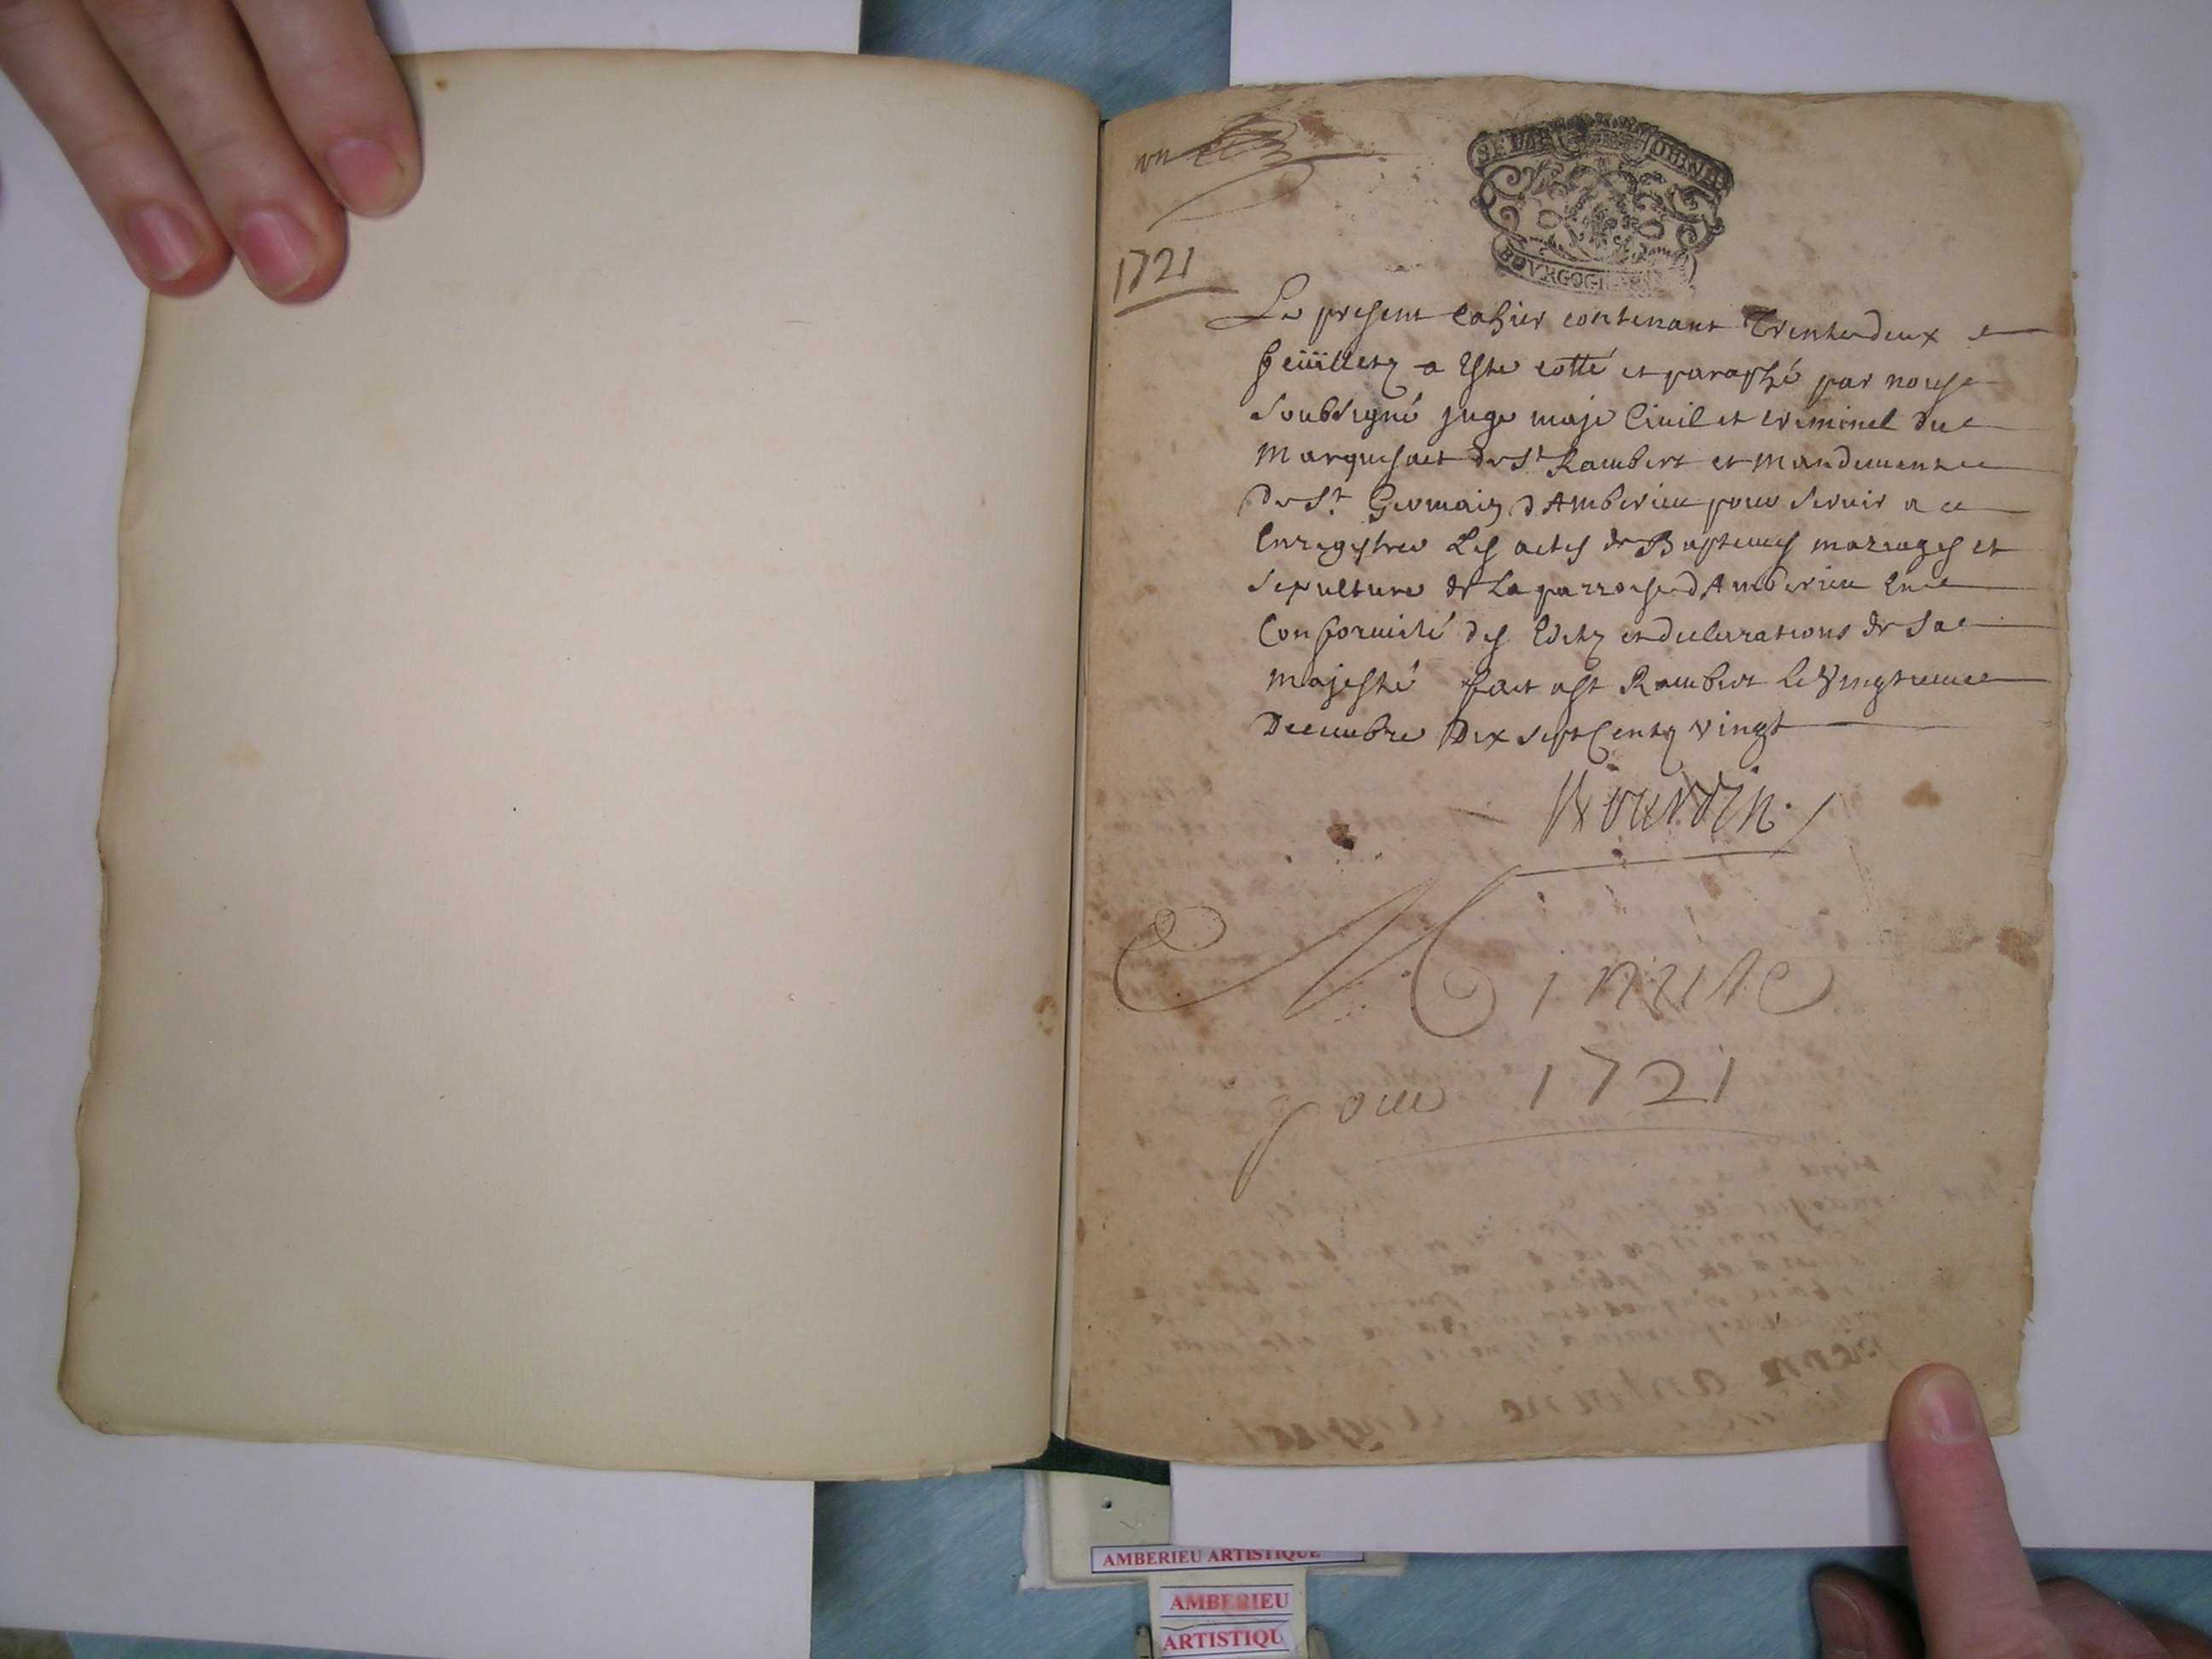 un
1721
BOVRGOG
Le present Cahier contenant Trente deux
feüilletz a Esté cotté et paraphé par nous
soubsigné juge maje Civil et criminel du
Marquisat de St Rambert et mandement
De St. Germain d'Amberieu pour servir a
Enregistrer Les actes de Baptemes mariages et
sepulture de La parroisse d'Amberieu En
Conformité des Editz et declarations de Sa
Majesté fait a St Rambert le Vingtieme
Decembre Dix sept Centz vingt
Minute
pour 1721
AMBERIEU ARTISTIQUE
AMBERIEU
ARTISTIQU